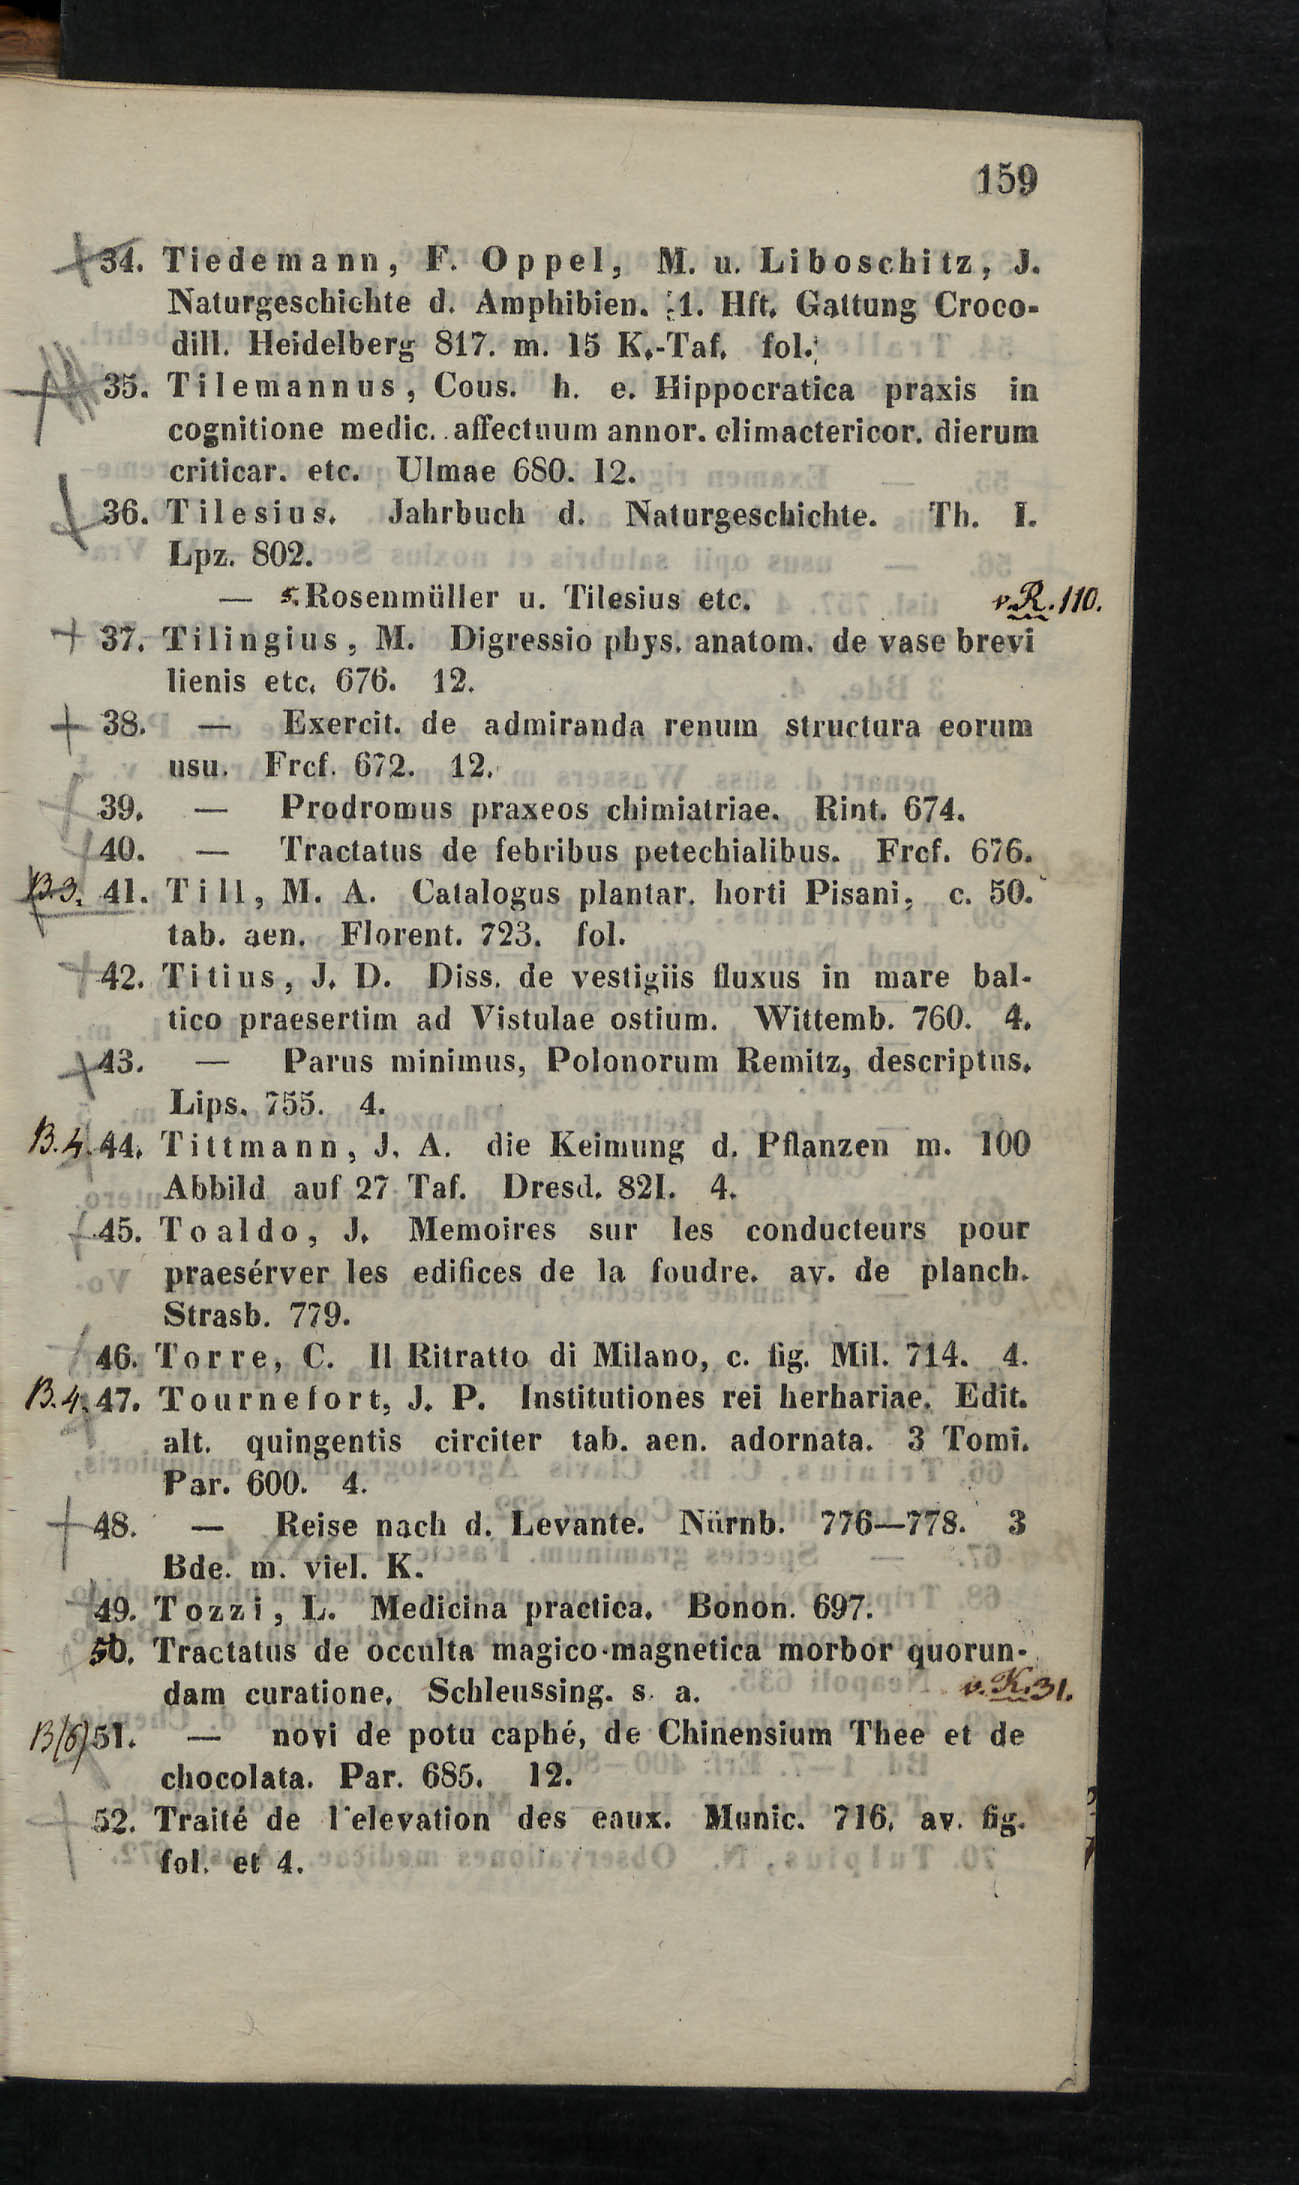 159
34. Tiedemann, F. Oppel, M. u. Liboschitz, J.
Naturgeschichte d. Amphibien. 1. Hft. Gattung Croco-
dill. Heidelberg 817. m. 15 K.-Taf. fol.
35. Tilemannus, Cous. h. e. Hippocratica praxis in
cognitione medic. affectuum annor. climactericor. dierum
criticar. etc. Ulmae 680. 12.
36. Tilesius. Jahrbuch d. Naturgeschichte. Th. I.
Lpz. 802.
— s. Rosenmüller u. Tilesius etc. v. R. 110.
37. Tilingius, M. Digressio phys. anatom. de vase brevi
lienis etc. 676. 12.
38. — Exercit. de admiranda renum structura eorum
usu. Frcf. 672. 12.
39. — Prodromus praxeos chimiatriae. Rint. 674.
40. — Tractatus de febribus petechialibus. Frcf. 676.
B.3. 41. Till, M. A. Catalogus plantar. horti Pisani, c. 50.
tab. aen. Florent. 723. fol.
42. Titius, J. D. Diss. de vestigiis fluxus in mare bal-
tico praesertim ad Vistulae ostium. Wittemb. 760. 4.
43. — Parus minimus, Polonorum Remitz, descriptus.
Lips. 755. 4.
B.4. 44. Tittmann, J. A. die Keimung d. Pflanzen m. 100
Abbild auf 27 Taf. Dresd. 821. 4.
45. Toaldo, J. Memoires sur les conducteurs pour
praesérver les edifices de la foudre. av. de planch.
Strasb. 779.
46. Torre, C. Il Ritratto di Milano, c. fig. Mil. 714. 4.
B.4. 47. Tournefort, J. P. Institutiones rei herbariae. Edit.
alt. quingentis circiter tab. aen. adornata. 3 Tomi.
Par. 600. 4.
48. — Reise nach d. Levante. Nürnb. 776—778. 3
Bde. m. viel. K.
49. Tozzi, L. Medicina practica. Bonon. 697.
50. Tractatus de occulta magico-magnetica morbor quorun-
dam curatione. Schleussing. s. a. v. K. 31.
B(6) 51. — novi de potu caphé, de Chinensium Thee et de
chocolata. Par. 685. 12.
52. Traité de l'elevation des eaux. Munic. 716. av. fig.
fol. et 4.